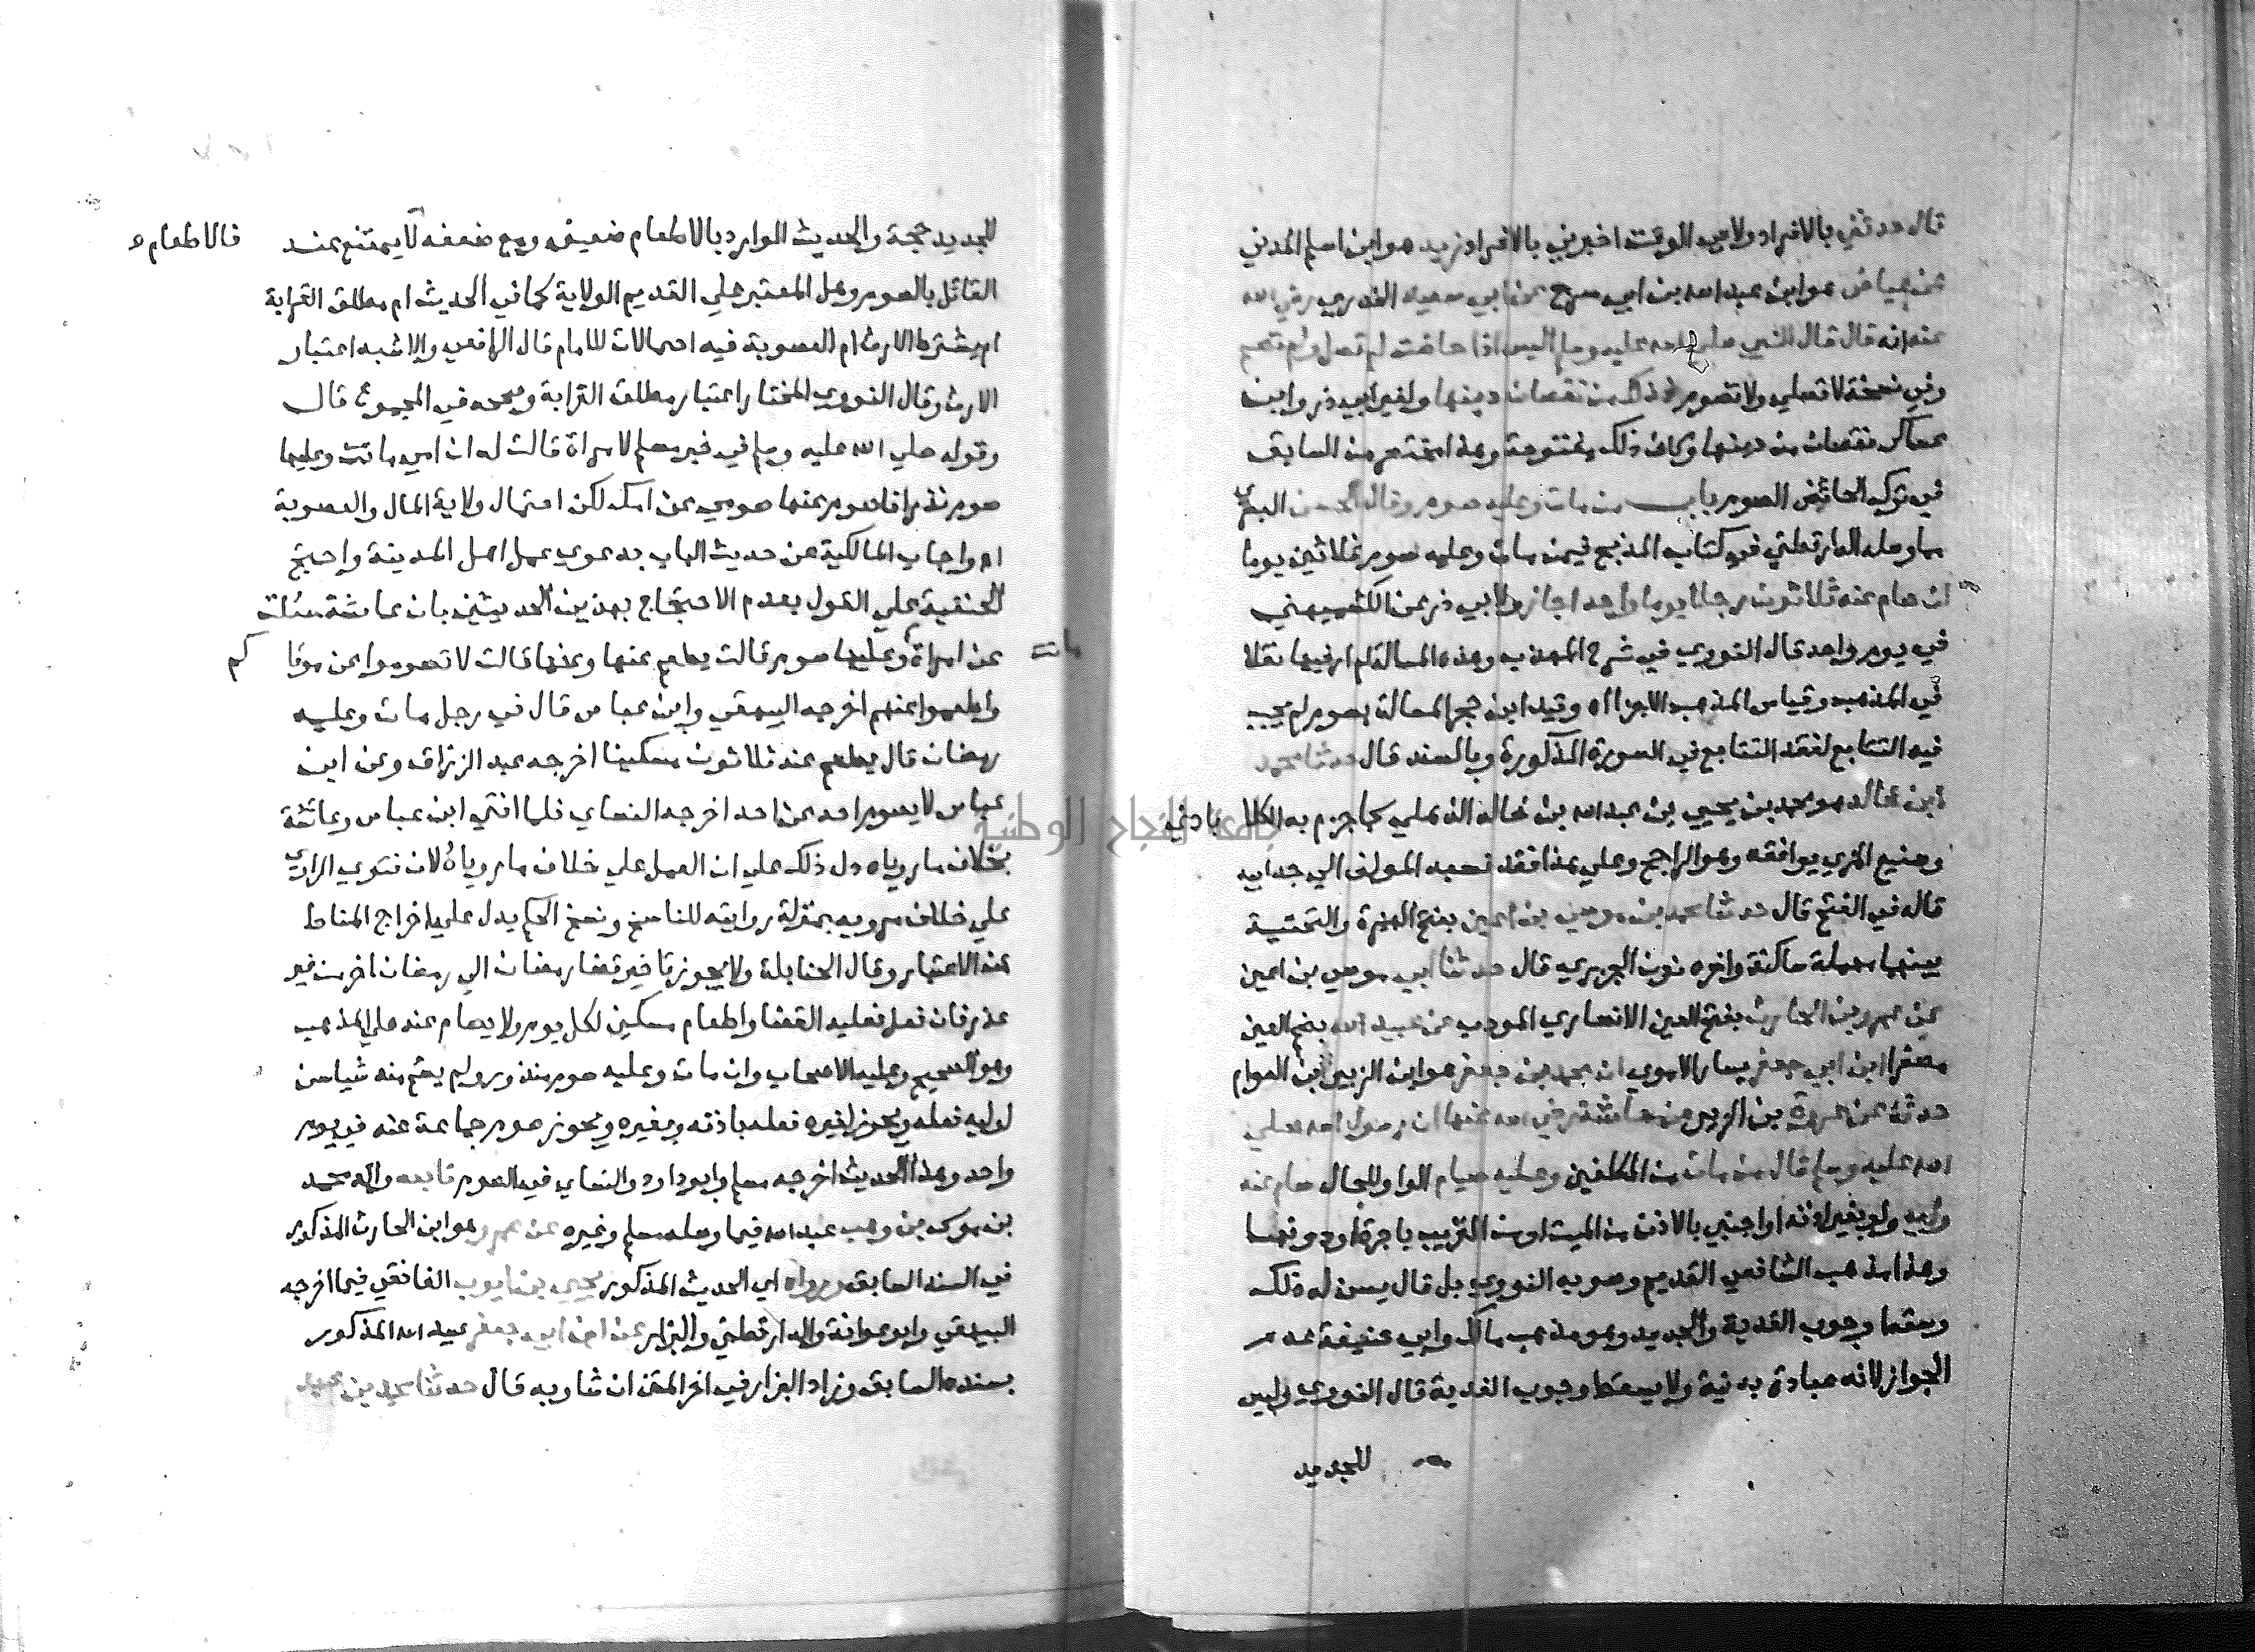 قال حدثني بالافراد ولابي الوقت اخبرني بالافراد زيد هو ابن اسلم المدني
عن عياض هو ابن عبد الله بن ابي سرح عن ابي سعيد الخدري رضي الله
عنه انه قال قال النبي صلى الله عليه وسلم اليس اذا حاضت لم تصل ولم تصم
وفي نسخة لا تصلي ولا تصوم فذلك من نقصان دينها ولغير ابي ذر وابن
عساكر نقصان من دينها وكاف ذلك مفتوحة وهذا مختصر من السابق
في ترك الحائض الصوم باب من مات وعليه صوم وقال الحسن البصري
مما وصله الدارقطني في كتاب المذبح فيمن مات وعليه صوم ثلاثين يوما
ان صام عنه ثلاثون رجلا يوما واحد اجاز ولابي ذر عن الكشميهني
في يوم واحد قال النووي في شرح المهذب وهذه المسالة لم ار فيها نقلا
في المذهب وقياس المذهب الاجزا اه وقيد ابن حجر المسالة بصوم لم يجب
فيه التتابع لفقد التتابع في الصورة المذكورة وبالسند قال حدثنا محمد
ابن خالد هو محمد بن يحيي بن عبد الله بن خالد الذهلي كما جزم به الكلا باذي
وصنيع المزي يوافقه وهو الراجح وعلي هذا فقد نسبه المولف الي جد ابيه
قاله في الفتح قال حدثنا محمد بن موسي بن اعين بفتح الهمزة والتحتية
بينهما مهملة ساكنة واخره نون الجزري قال حدثنا ابي موسي بن اعين
عن عمرو بن الحارث بفتح العين الانصاري المودب عن عبيد الله بضم العين
مصغرا ابن ابي جعفر يسار الاموي ان محمد بن جعفر هو ابن الزبير ابن العوام
حدثه عن عروة بن الزبير عن عائشة رضي الله عنها ان رسول الله صلي
الله عليه وسلم قال من مات من المكلفين وعليه صيام الواو للحال صام عنه
وليه ولو بغير اذنه او اجنبي بالاذن من الميت او من القريب باجرة او دونها
وهذا مذهب الشافعي القديم وصوبه النووي بل قال يسن له ذلك
ويسقط وجوب الفدية والجديد وهو مذهب مالك وابي حنيفة عدم
الجواز لانه عبادة بدنية ولا يسقط وجوب الفدية قال النووي وليس
للجديد
للجديد حجة والحديث الوارد بالاطعام ضعيف ومع ضعفه لا يمتنع عند
فالاطعام
القائل بالصوم وهل المعتبر علي القديم الولاية كما في الحديث ام مطلق القرابة
ام يشترط الارث ام العصوبة فيه احتمالات للامام قال الرافعي والاشبه اعتبار
الارث وقال النووي المختار اعتبار مطلق القرابة وصححه في المجموع قال
وقوله صلي الله عليه وسلم في خبر مسلم لامراة قالت له ان امي ماتت وعليها
صوم نذر افاصوم عنها صومي عن امك لكن احتمال ولاية المال والعصوبة
اه واجاب المالكية عن حديث الباب بدعوي عمل اهل المدينة واحتج
الحنفية علي القول بعدم الاحتجاج بهذين الحديثين بان عائشة سئلت
عن امراة ماتت وعليها صوم قالت يطعم عنها وعنها قالت لا تصوموا عن موتا كم
واطعموا عنهم اخرجه البيهقي وابن عباس قال في رجل مات وعليه
رمضان قال يطعم عنه ثلاثون مسكينا اخرجه عبد الرزاق وعن ابن
عباس لا يصوم احد عن احد اخرجه النساي فلما افتي ابن عباس وعائشة
بخلاف ما روياه دل ذلك علي ان العمل علي خلاف ما روياه لان فتوي الراوي
علي خلاف مرويه بمنزلة روايته للناسخ ونسخ الحكم يدل علي اخراج المناط
عن الاعتبار وقال الحنابلة ولا يجوز تاخير قضا رمضان الي رمضان اخر من غير
عذر فان فعل فعليه القضا واطعام مسكين لكل يوم ولا يصام عنه علي المذهب
وهو الصحيح وعليه الاصحاب وان مات وعليه صوم منذور ولم يصم منه شيا سن
لوليه فعله ويجوز لغيره فعله باذنه وبغيره ويجوز صوم جماعة عنه في يوم
واحد وهذا الحديث اخرجه مسلم وابو داود والنساي في الصوم تابعه والد محمد
بن موسي بن وهب عبد الله فيما وصله مسلم وغيره عن عمرو هو ابن الحارث المذكور
في السند السابق ورواه اي الحديث المذكور يحيي بن ايوب الغافقي فيما اخرجه
البيهقي وابو عوانة والدارقطني والبزار عن ابن ابي جعفر عبيد الله المذكور
بسنده السابق وزاد البزار في اخر المتن ان شا وبه قال حدثنا محمد بن عبد
جامعة النجاح الوطنية